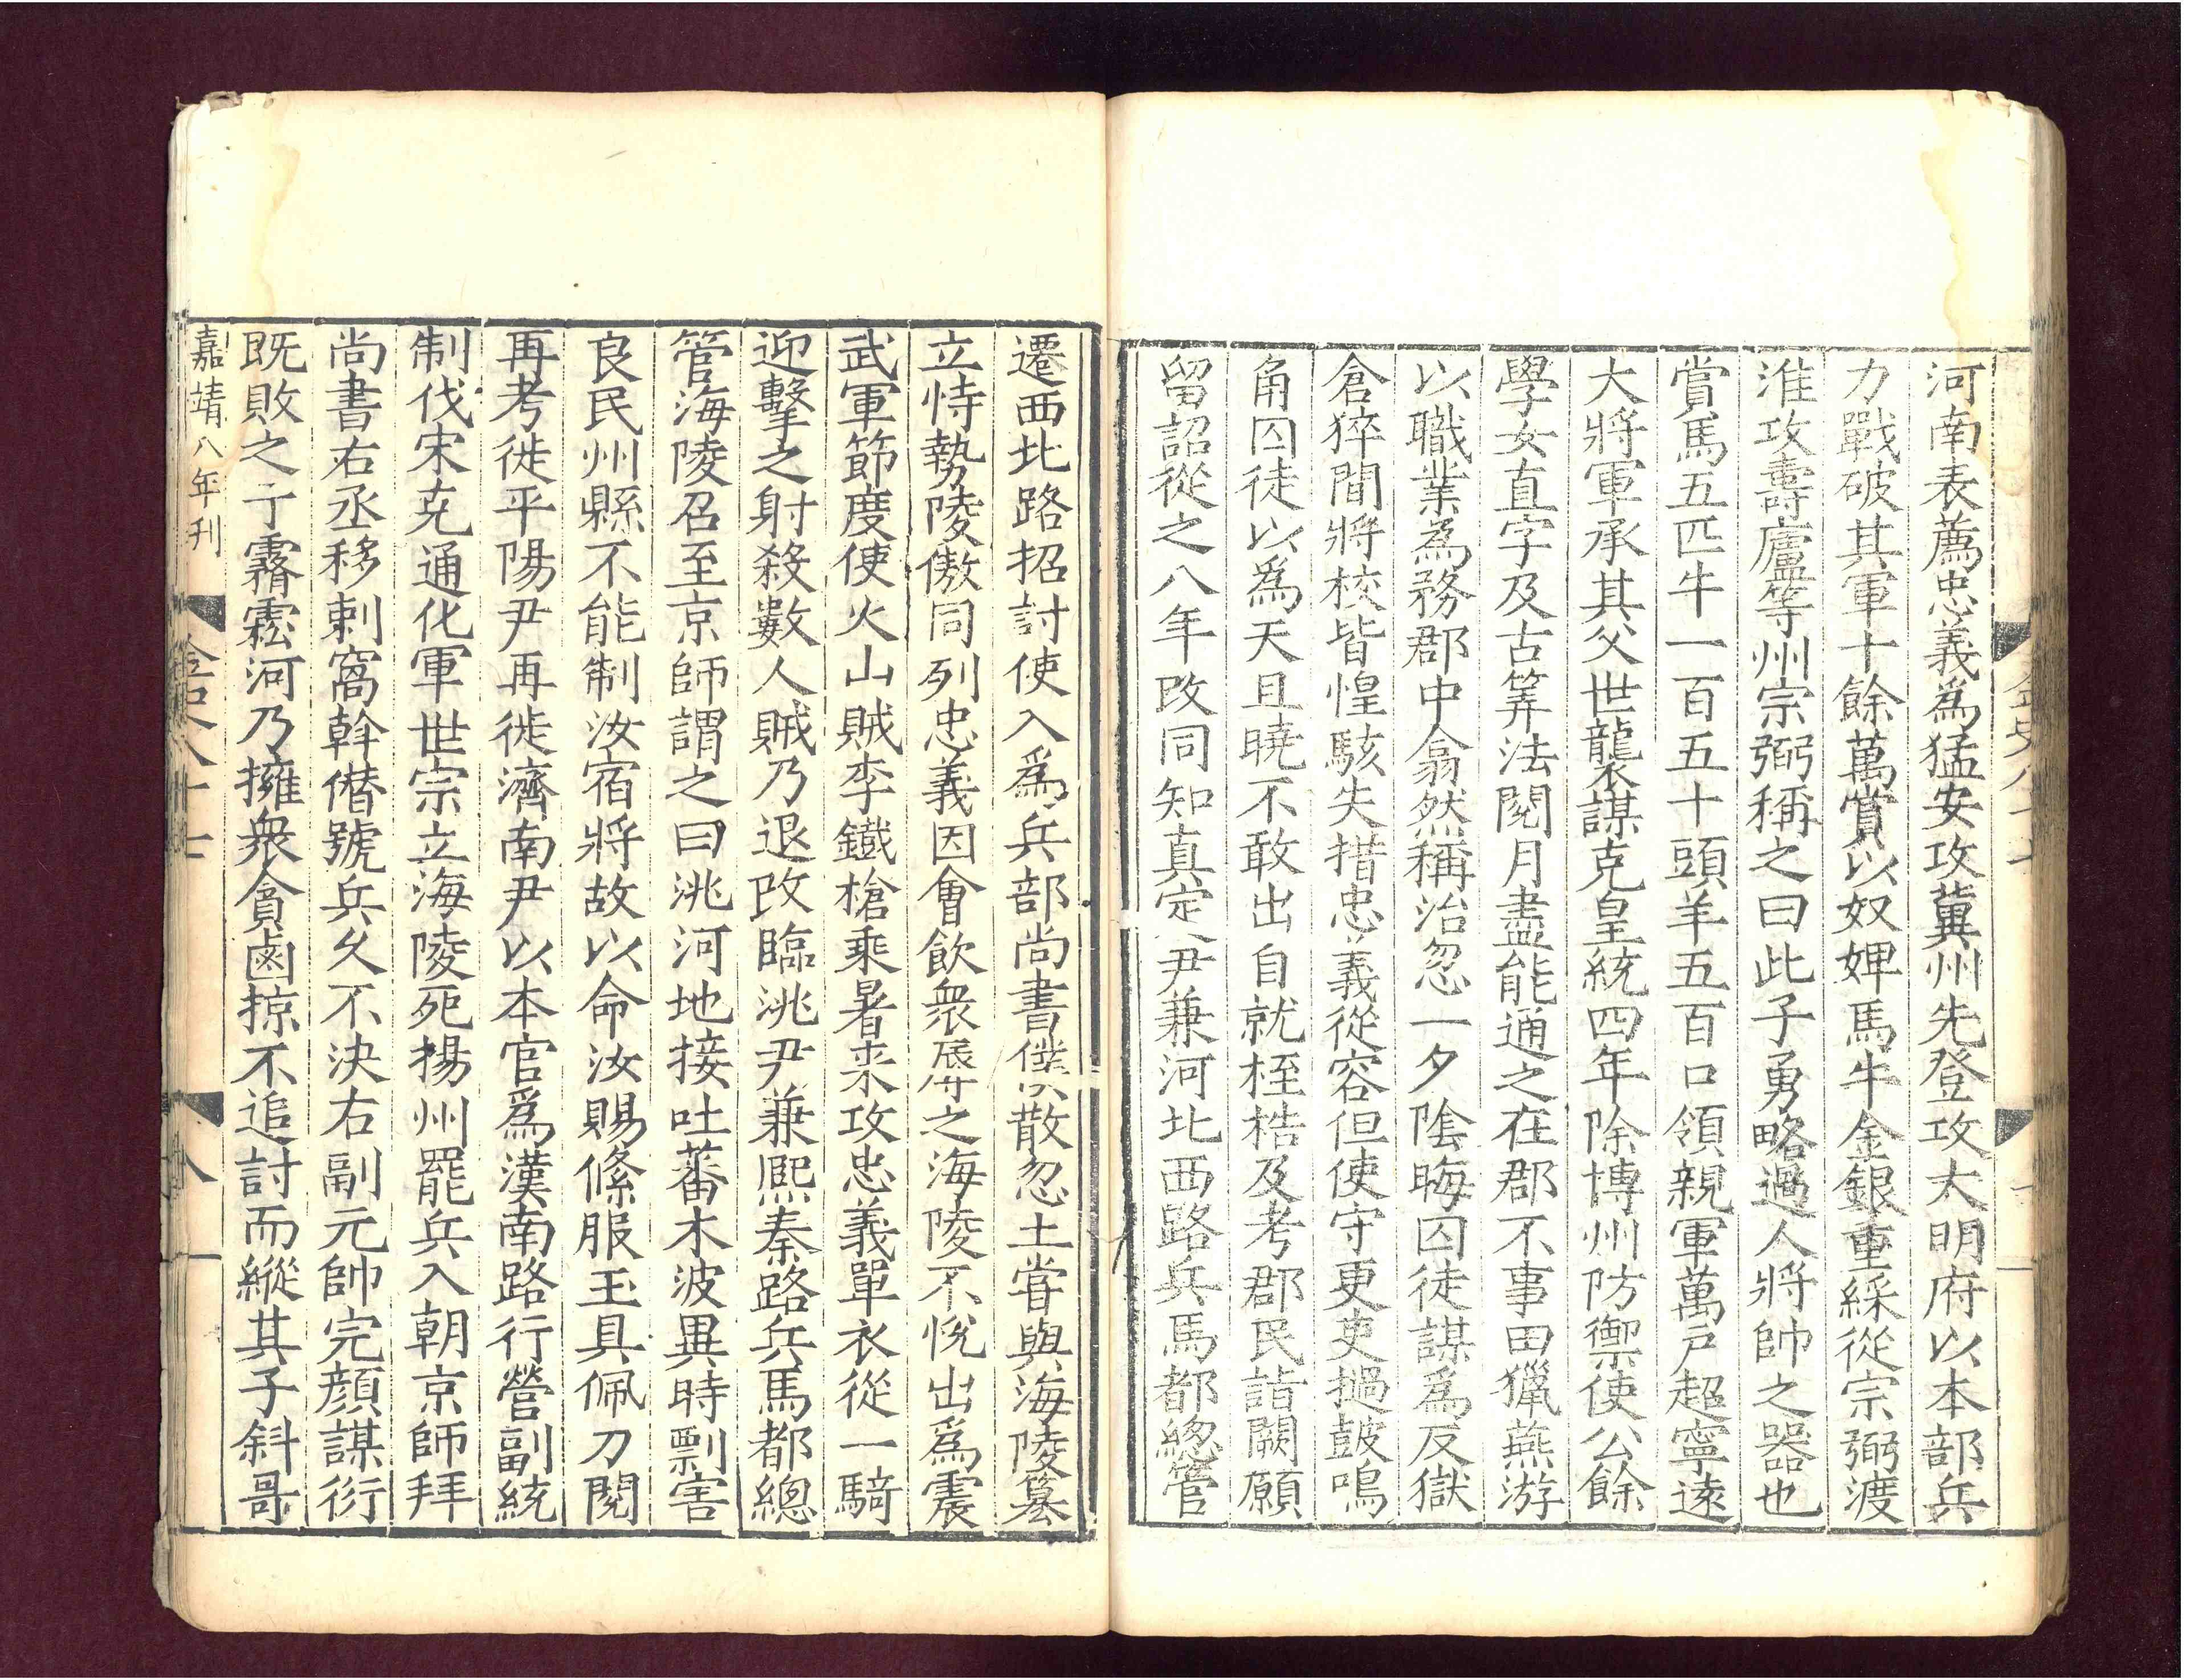 河南表薦忠義為猛安攻冀州先登攻大明府以本部兵
力戰破其軍十餘萬賞以奴婢馬牛金銀重綵從宗弼渡
淮攻壽廬等州宗弼稱之曰此子勇略過人將帥之器也
賞馬五匹牛一百五十頭羊五百口領親軍萬戶超寧遠
大將軍承其父世襲謀克皇統四年除博州防禦使公餘
學女直字及古筭法閱月盡能通之在郡不事田獵燕游
以職業為務郡中翕然稱治忽一夕陰晦囚徒謀為反獄
倉猝間將校皆惶駭失措忠義從容但使守更吏撾鼓鳴
角囚徒以為天且曉不敢出自就桎梏及考郡民詣闕願
留詔從之八年改同知真定尹兼河北西路兵馬都總管
遷西北路招討使入為兵部尚書僕散忽土嘗與海陵篡
立恃勢陵傲同列忠義因會飲衆辱之海陵不悅出為震
武軍節度使火山賊李鐵槍乘暑來攻忠義單衣從一騎
迎擊之射殺數人賊乃退改臨洮尹兼熙秦路兵馬都總
管海陵召至京師謂之曰洮河地接吐蕃木波異時剽害
良民州縣不能制汝宿將故以命汝賜絛服玉具佩刀閱
再考徙平陽尹再徙濟南尹以本官為漢南路行營副統
制伐宋克通化軍世宗立海陵死揚州罷兵入朝京師拜
尚書右丞移剌窩斡僭號兵久不決右副元帥完顏謀衍
既敗之于霿𩃭河乃擁衆貪鹵掠不追討而縱其子斜哥
嘉靖八年刊
金史八十七
八